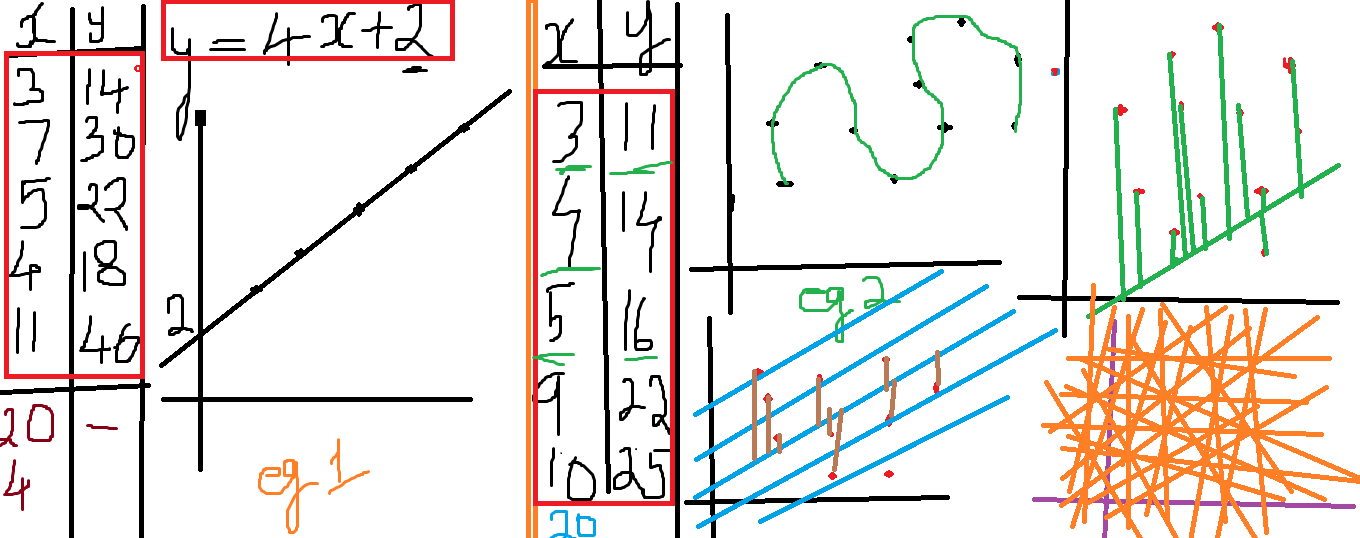 x y
3 14
7 30
5 22
4 18
11 46
20 -
4
y = 4x+2
2
eg 1
x y
3 11
4 14
5 16
9 22
10 25
20
eg 2